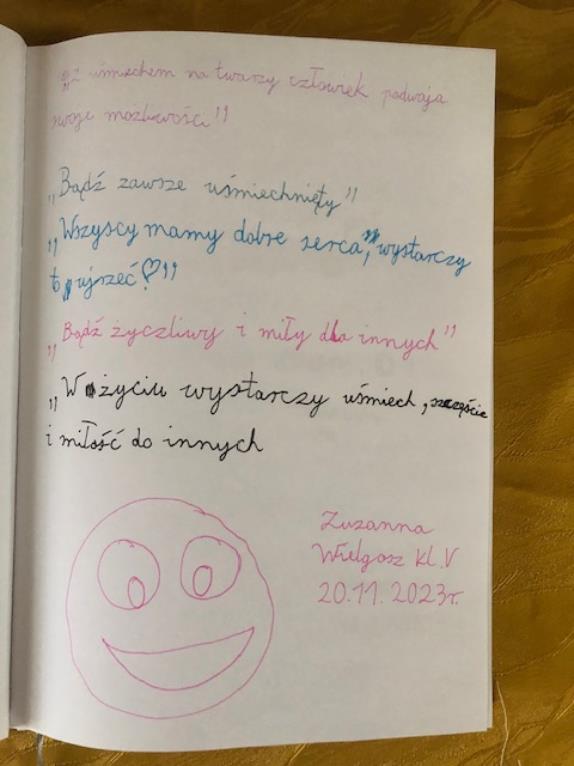 „Z uśmiechem na twarzy człowiek podwaja
swoje możliwości"
„Bądź zawsze uśmiechnięty"
„Wszyscy mamy dobre serca, wystarczy
to ujrzeć!"
„Bądź życzliwy i miły dla innych"
„W życiu wystarczy uśmiech, szczęście
i miłość do innych
Zuzanna
Wielgosz kl. V
20.11.2023r.